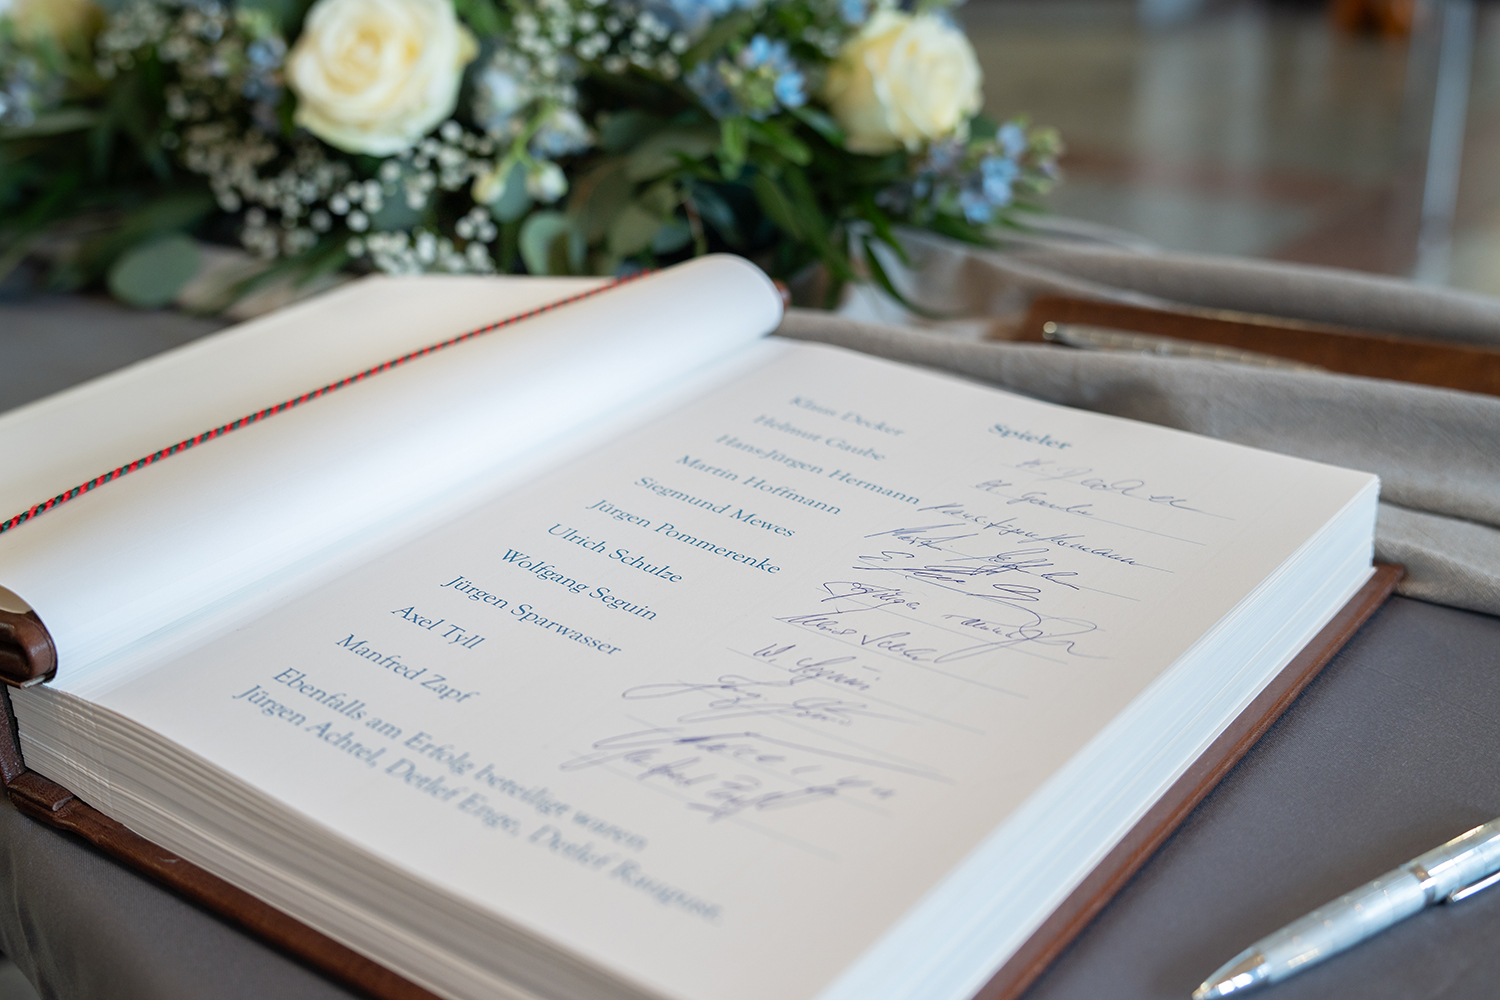 Spieler
Klaus Decker
Helmut Gaube
Hans-Jürgen Hermann
Martin Hoffmann
Siegmund Mewes
Jürgen Pommerenke
Ulrich Schulze
Wolfgang Seguin
Jürgen Sparwasser
Axel Tyll
Manfred Zapf
Ebenfalls am Erfolg beteiligt waren
Jürgen Achtel, Detlef Enge, Detlef Raugust.
H. Decker
H. Gaube
Hans-Jürgen Hermann
W. Seguin
Manfred Zapf